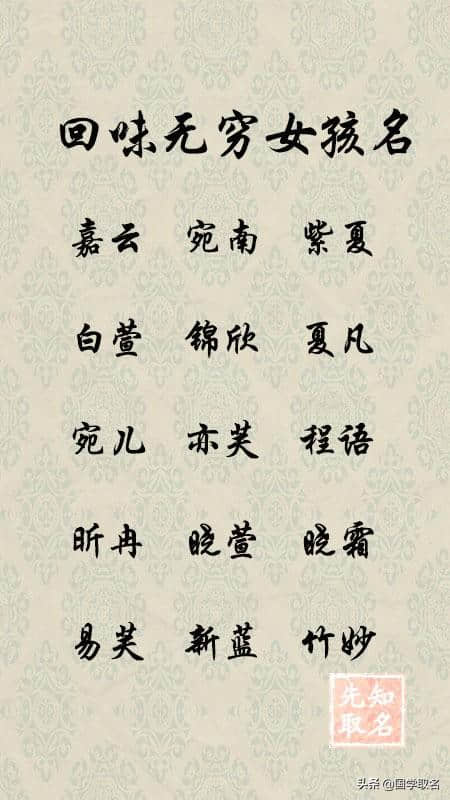 回味无穷女孩名
嘉云 宛南 紫夏
白萱 锦欣 夏凡
宛儿 亦芙 程语
昕冉 晓萱 晓霜
易芙 新蓝 竹妙
先知
取名
头条 @国学取名